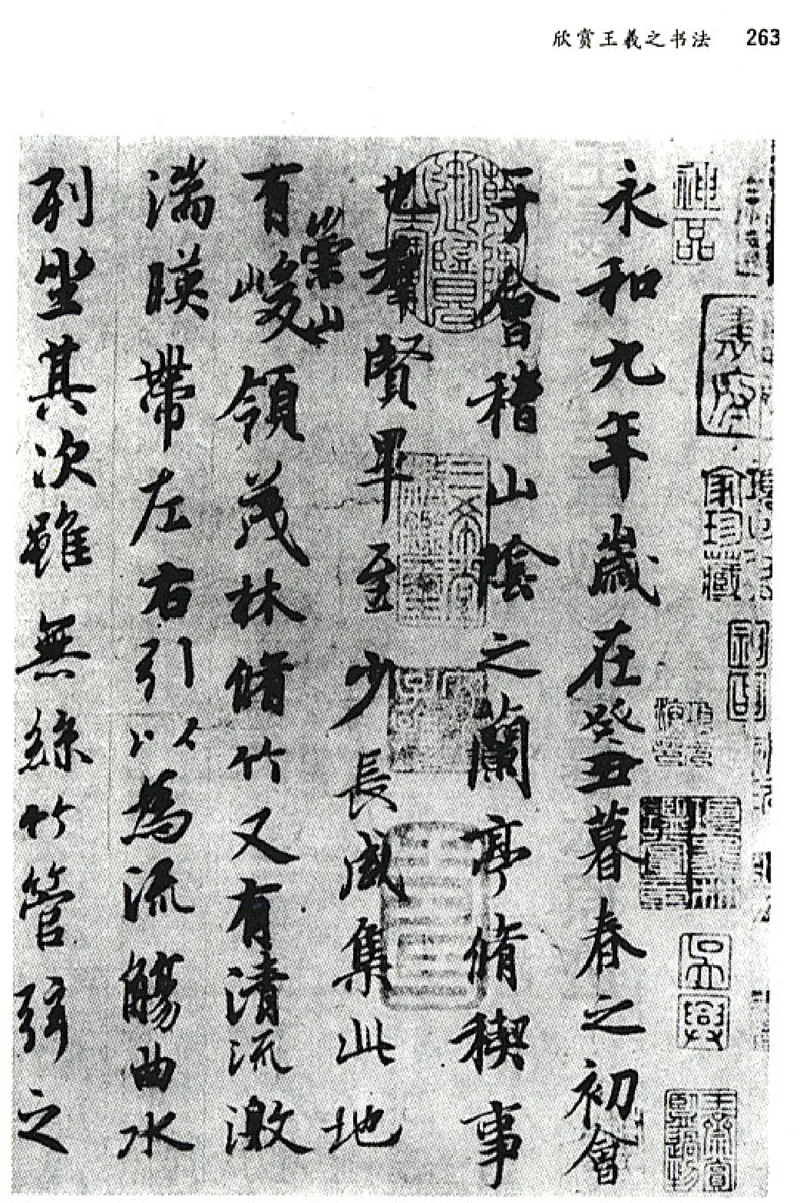 欣赏王羲之书法 263
永和九年歲在癸丑暮春之初會
于會稽山陰之蘭亭脩稧事
也群賢畢至少長咸集此地
有崇山峻領茂林脩竹又有清流激
湍暎帶左右引以為流觴曲水
列坐其次雖無絲竹管弦之
神品
家珍藏
吳興